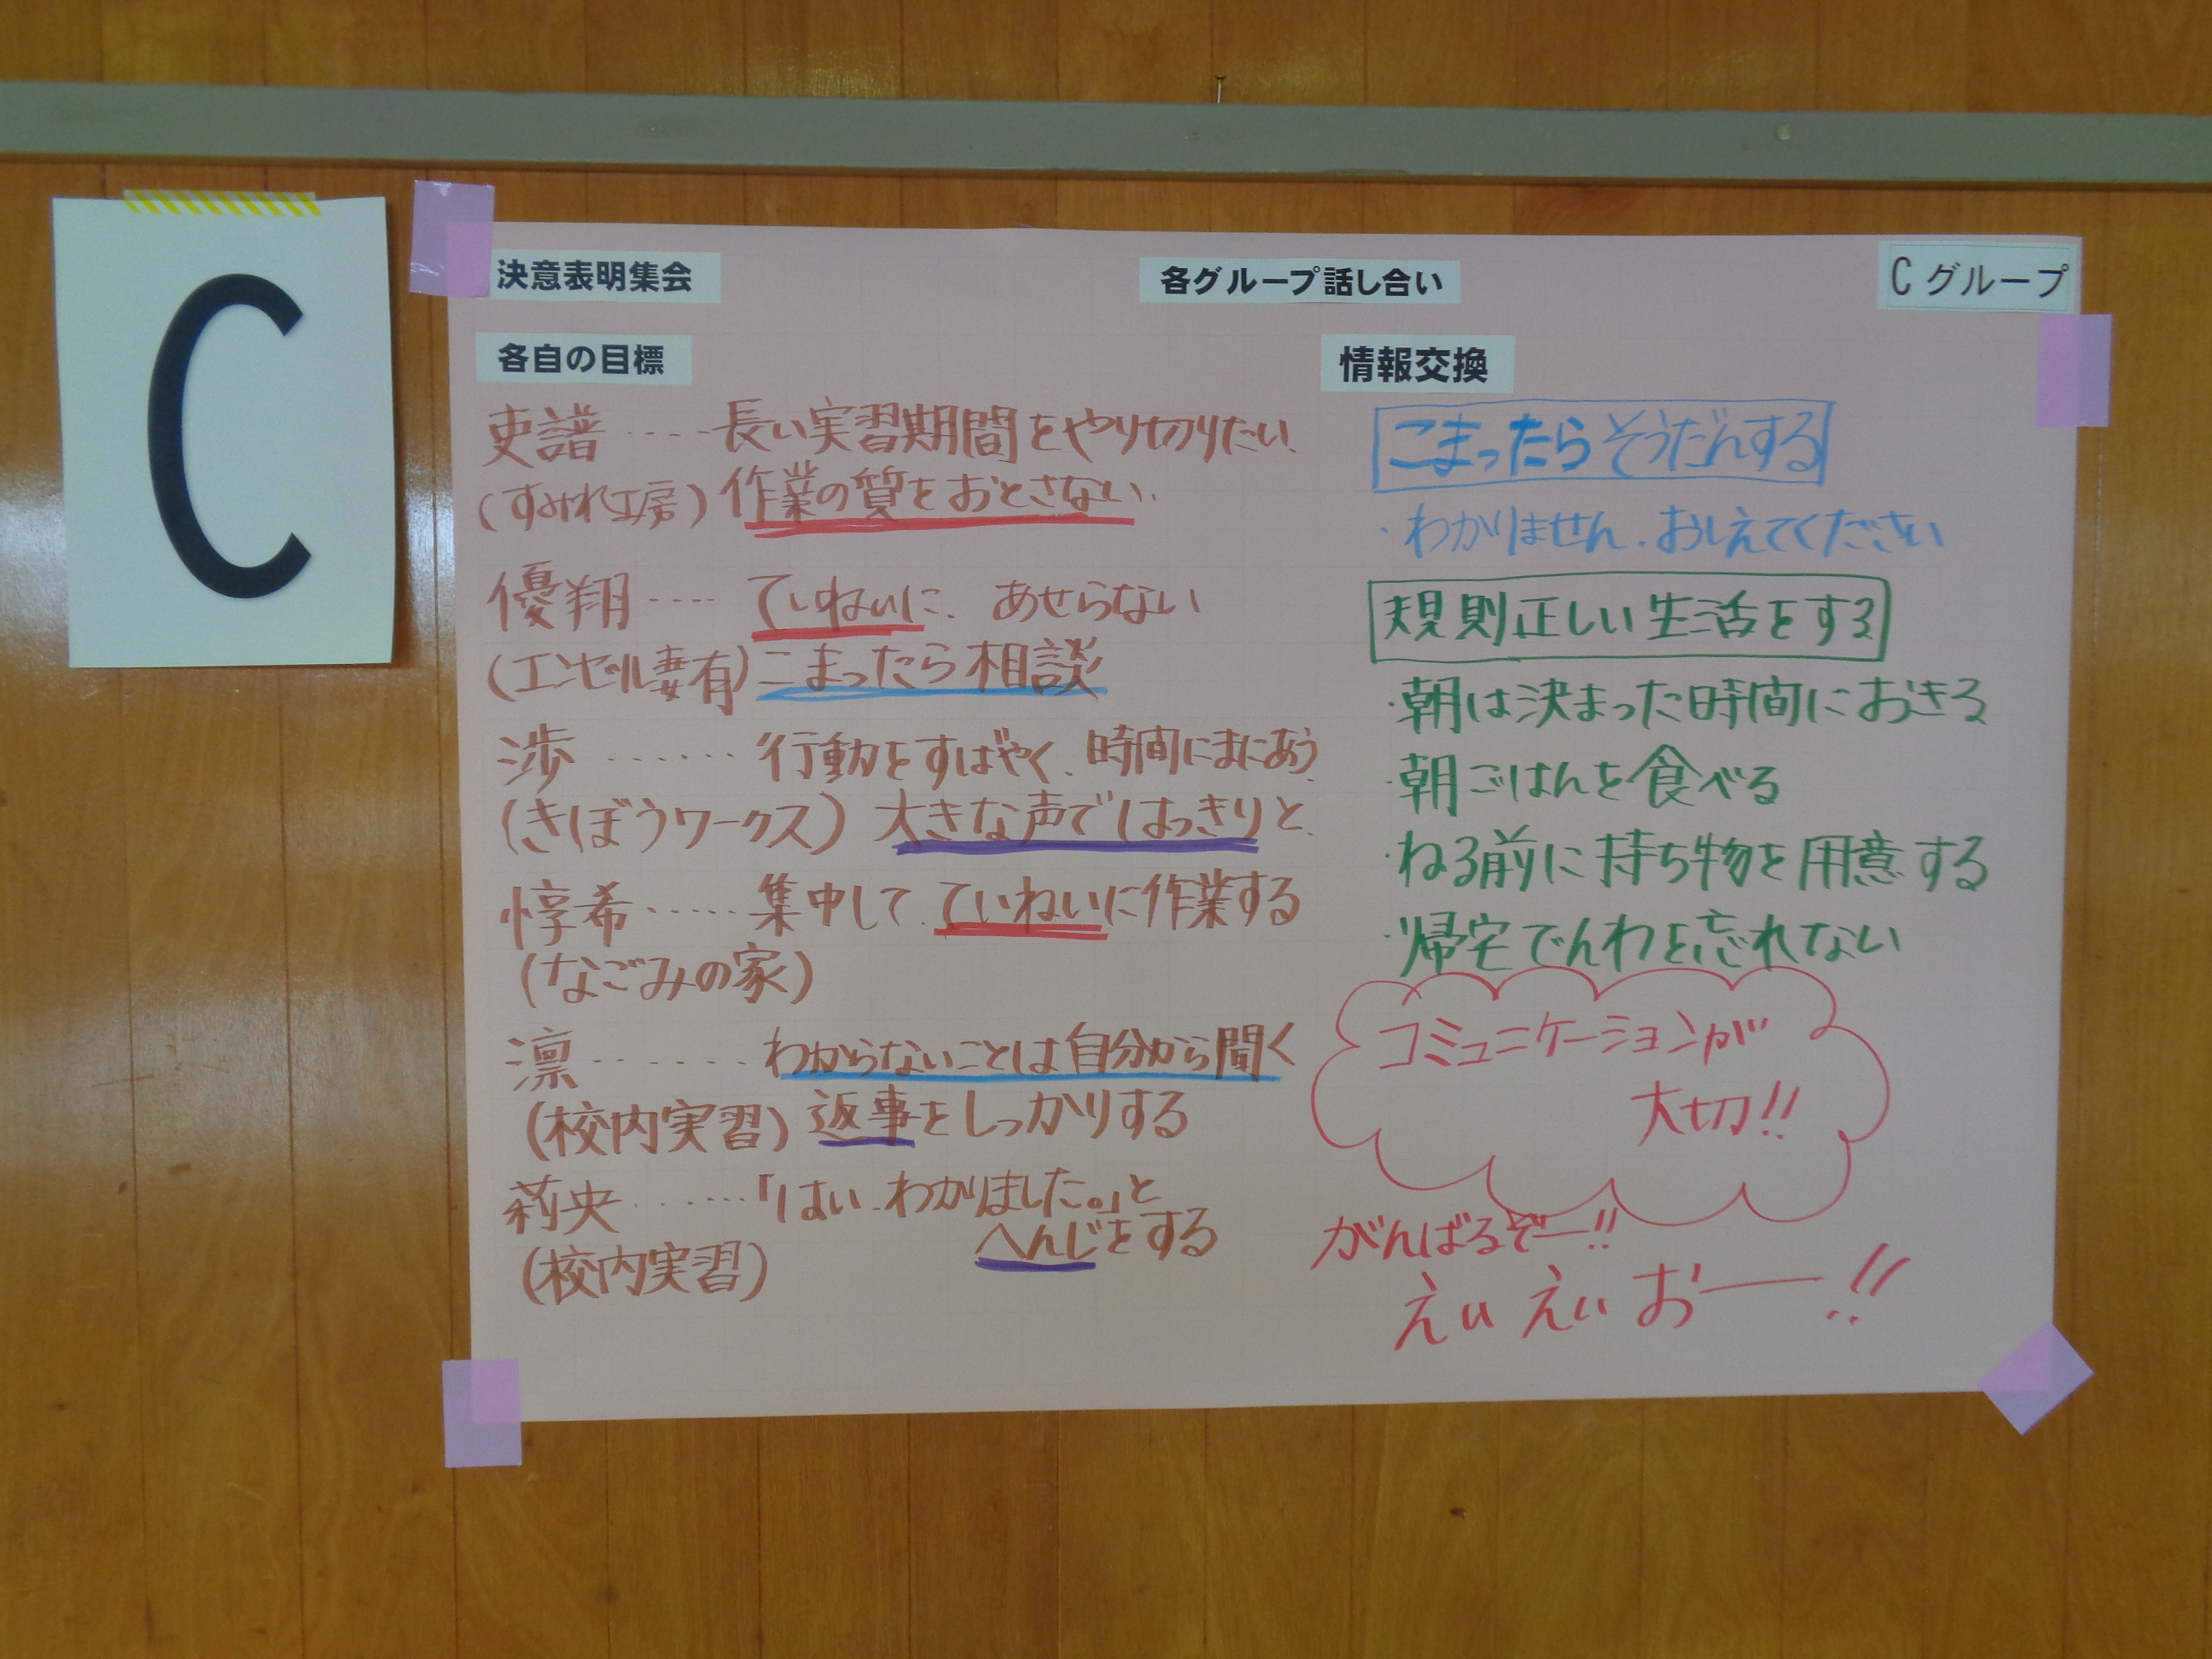 C
決意表明集会
各グループ話し合い
Cグループ
各自の目標
史譜‥‥長い実習期間をやり切りたい
(すみれ工房) 作業の質をおとさない
優翔‥‥ていねいに、あせらない
(エンゼル妻有) こまったら相談
渉‥‥‥行動をすばやく、時間にまにあう
(きぼうワークス) 大きな声ではっきりと
惇希‥‥‥集中して、ていねいに作業する
(なごみの家)
凛‥‥‥‥わからないことは自分から聞く
(校内実習) 返事をしっかりする
莉央‥‥‥「はい、わかりました。」と
へんじをする
(校内実習)
情報交換
こまったらそうだんする
・わかりません、おしえてください
規則正しい生活をする
・朝は決まった時間におきる
・朝ごはんを食べる
・ねる前に持ち物を用意する
・帰宅でんわを忘れない
コミュニケーションが
大切!!
がんばるぞー!!
えい えい おー!!